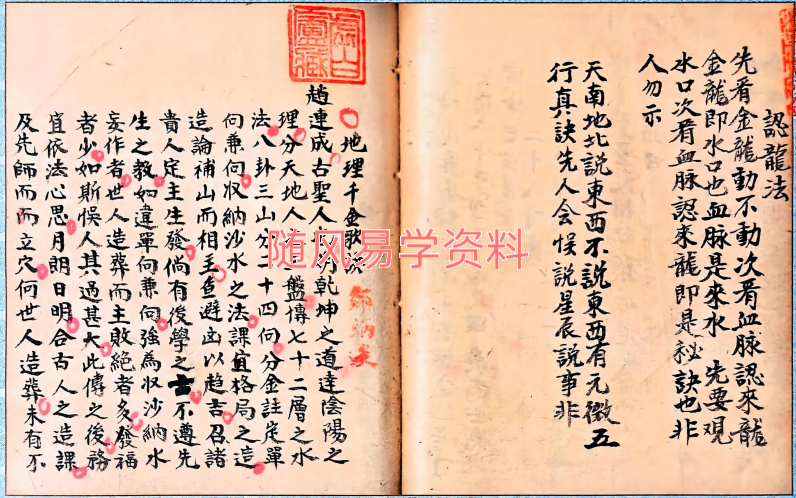 認龍法
先看金龍動不動次看血脉認來龍
金龍即水口也血脉是來水 先要观
水口次看血脉認來龍即是秘訣也非
人勿示
天南地北説東西不説東西有元微五
行真訣先人会悮説星辰説事非
地理千金歌
趙連成古聖人 乾坤之道達陰陽之
理分天地人 盤傳七十二層之水
法八卦三山分二十四向分金註定單
向兼向収納沙水之法課宜格局之造
造論補山而相主查避凶以趋吉召諸
貴人定主生發倘有後學之士不遵先
生之教如違單向兼向強為収沙納水
妄作者世人造葬而主敗絕者多發福
者少如斯悮人其過甚大此傳之後務
宜依法心思月朗日明合古人之造課
及先師而而立穴何世人造葬未有不
随风易学资料